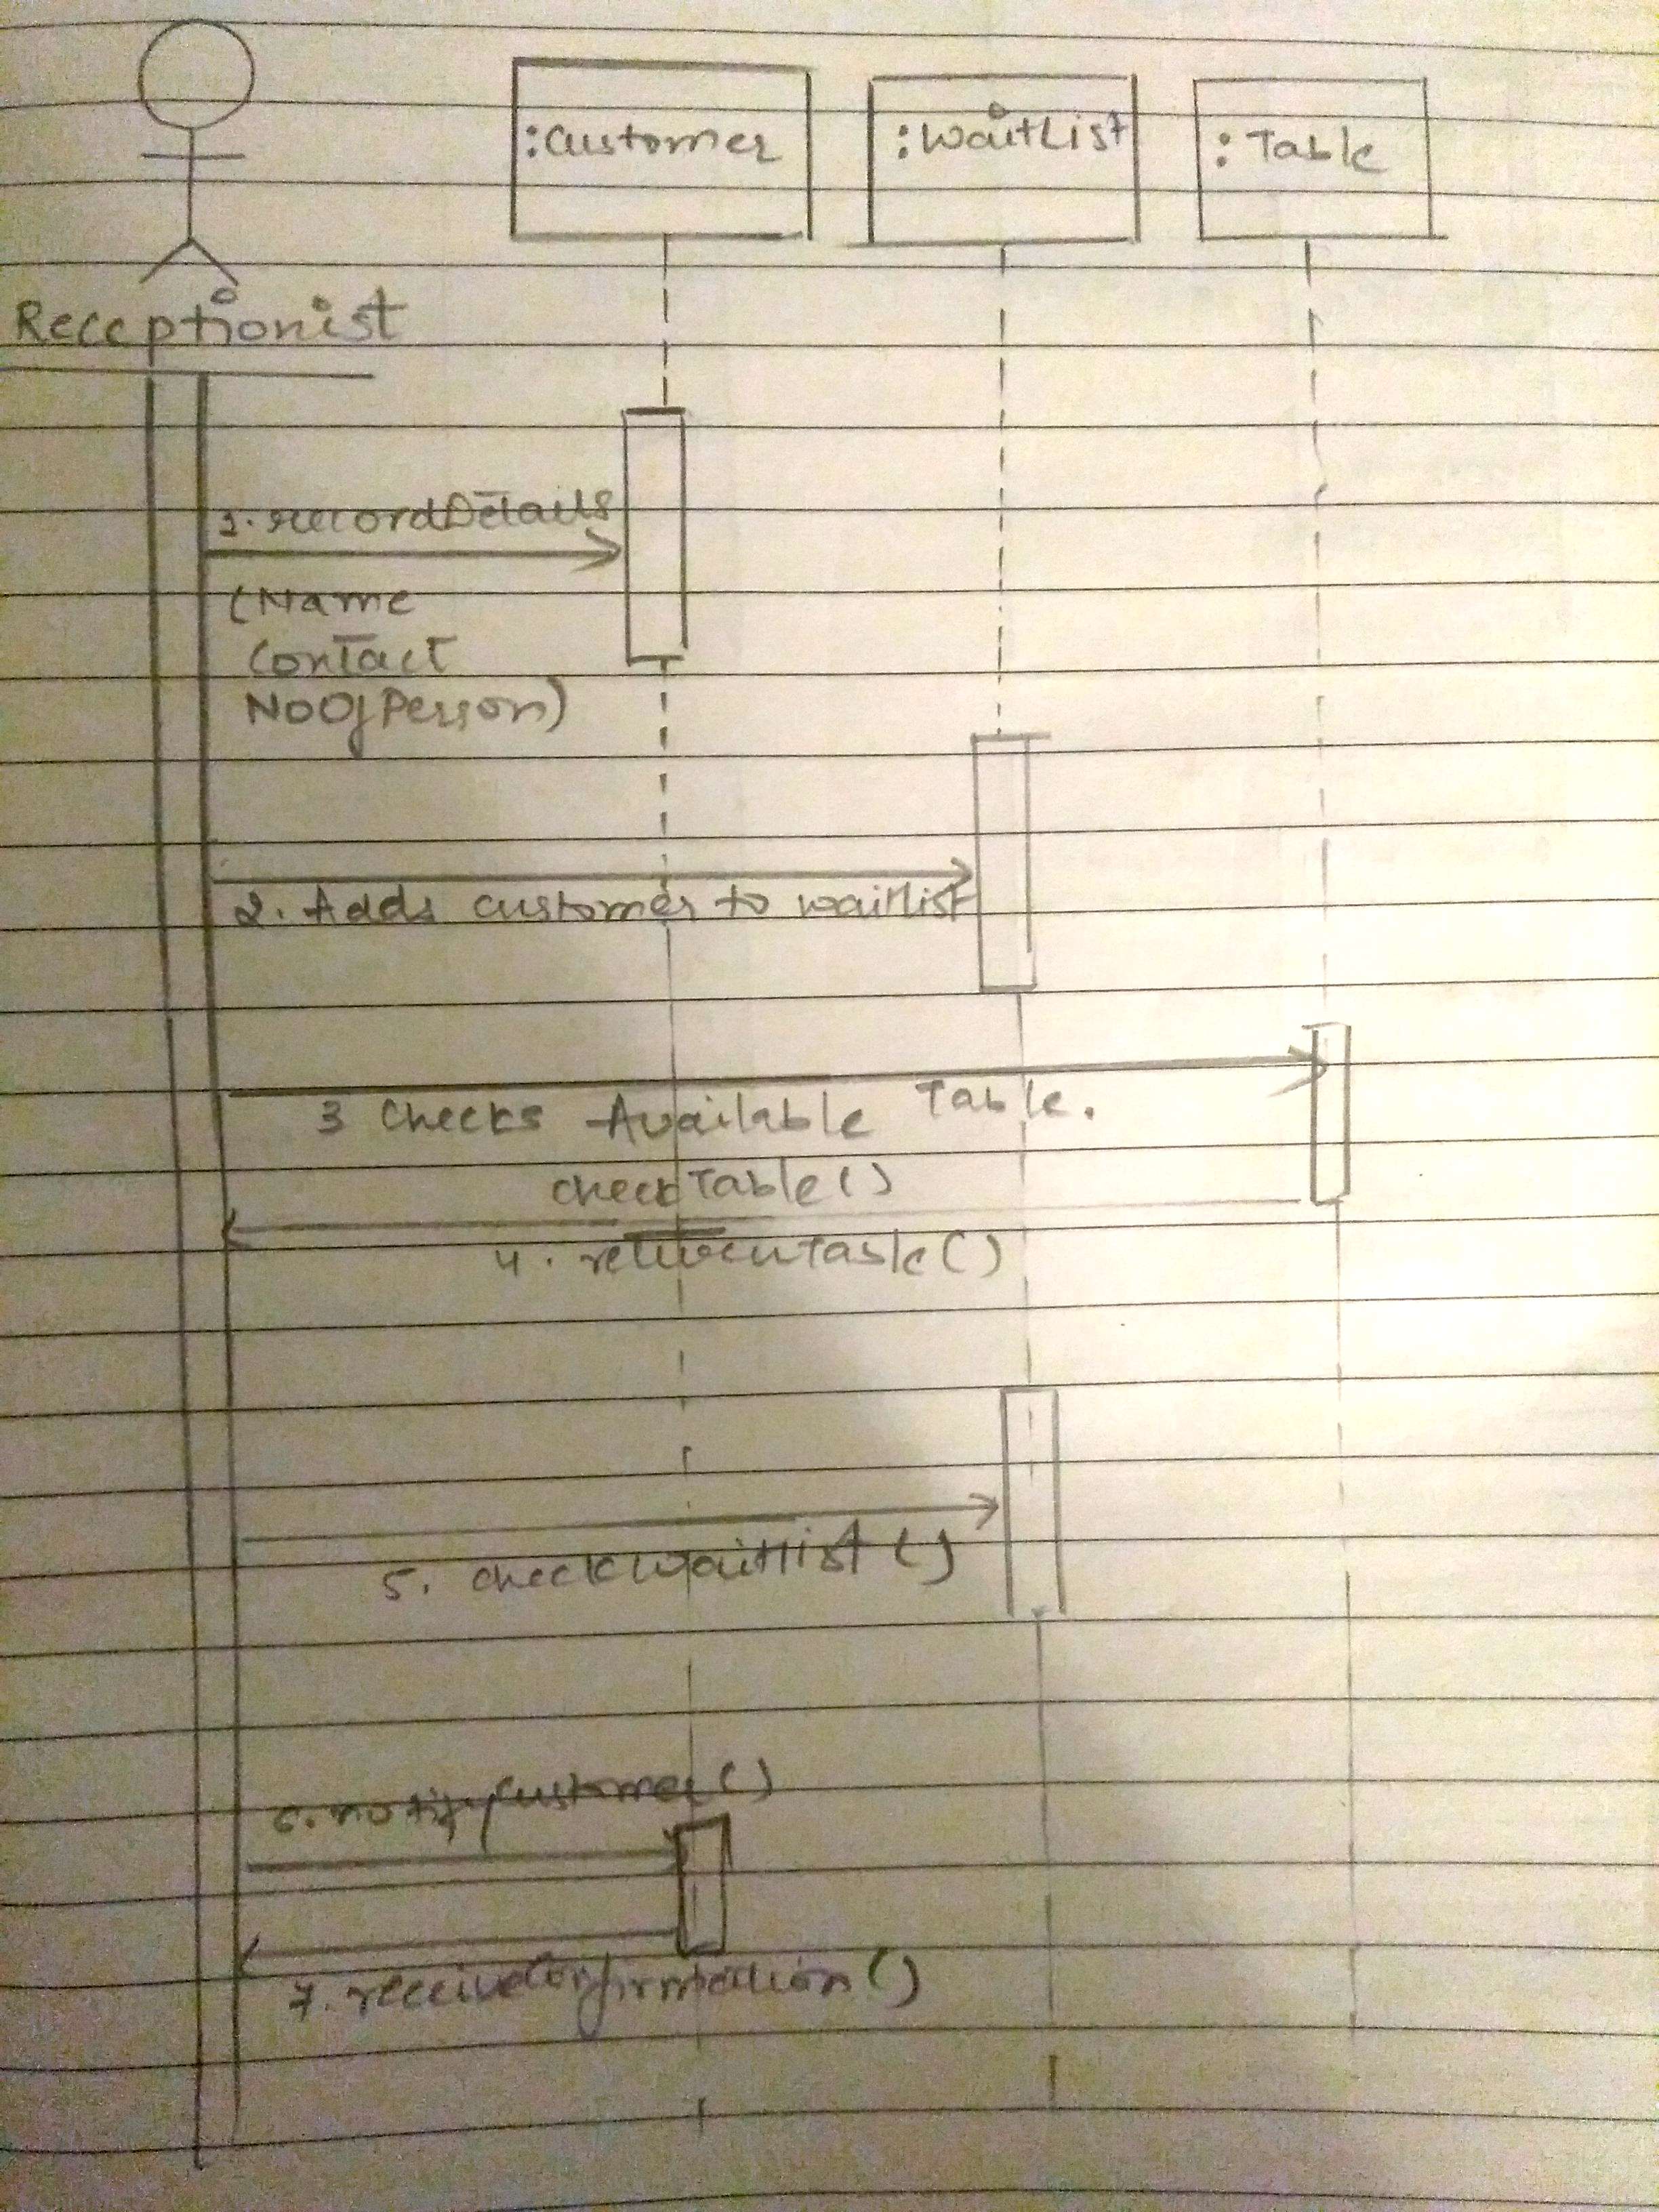 :Customer
:WaitList
:Table
Receptionist
1. recordDetails
(Name
Contact
NoOfPerson)
2. Adds customer to waitlist
3 Checks Available Table.
checkTable()
4. returnTable()
5. checkWaitlist()
6. notifyCustomer()
7. receiveConfirmation()